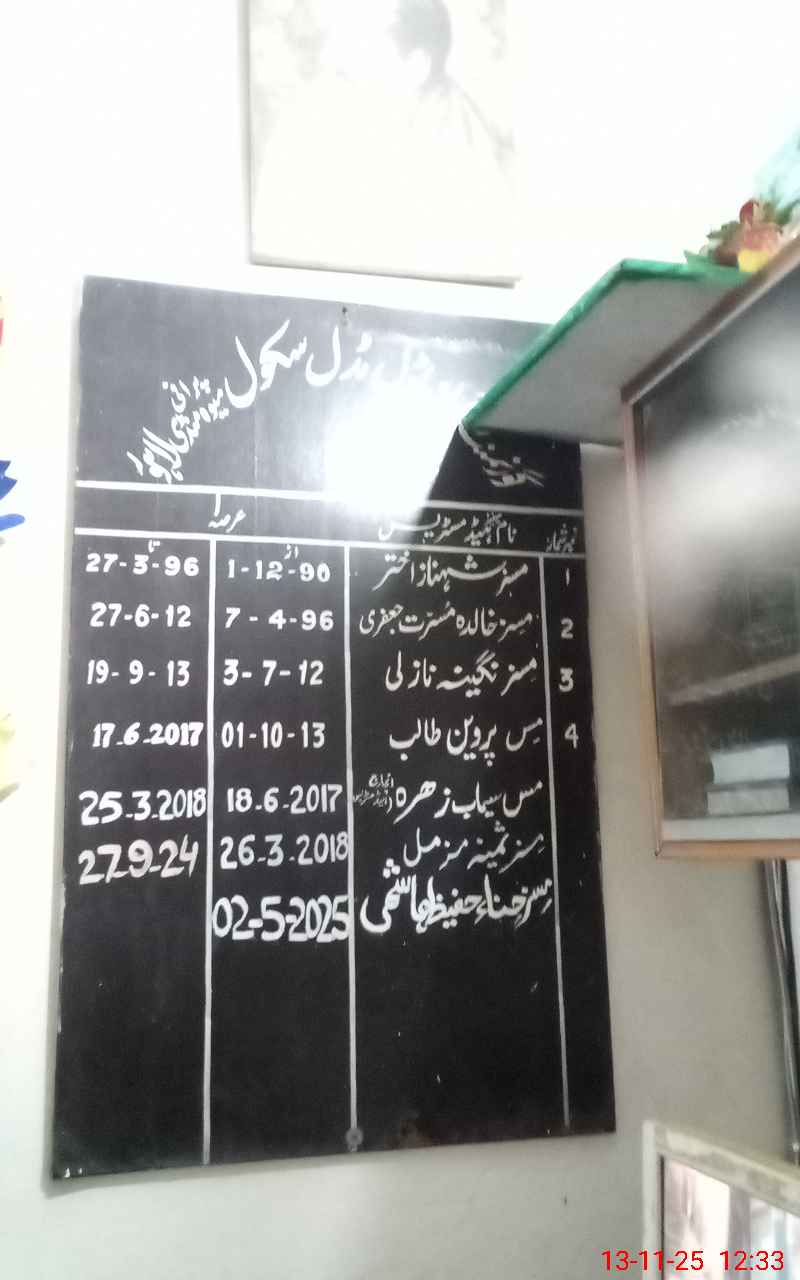 گورنمنٹ سوشل مڈل سکول پرانی میوہ منڈی لاہور
نمبر شمار نام ہیڈ مسٹریس عرصہ
از تا
1 مسز شہناز اختر 1-12-90 27-3-96
2 مسز خالدہ مسرت جعفری 7-4-96 27-6-12
3 مسز نگینہ نازلی 3-7-12 19-9-13
4 مس پروین طالب 01-10-13 17.6.2017
مس سیماب زھرہ (انچارج ہیڈ مسٹریس) 18.6.2017 25.3.2018
مسز ثمینہ مزمل 26.3.2018 27.9.24
مسز حناء حفیظ ہاشمی 02-5-2025
13-11-25 12:33